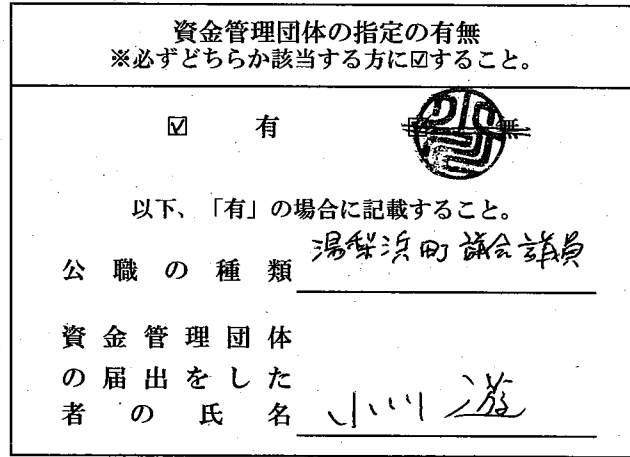 資金管理団体の指定の有無
※必ずどちらか該当する方に☑すること。
☑ 有 ☑ 無
以下、「有」の場合に記載すること。
公職の種類 湯梨浜町議会議員
資金管理団体
の届出をした
者の氏名 小川 遊